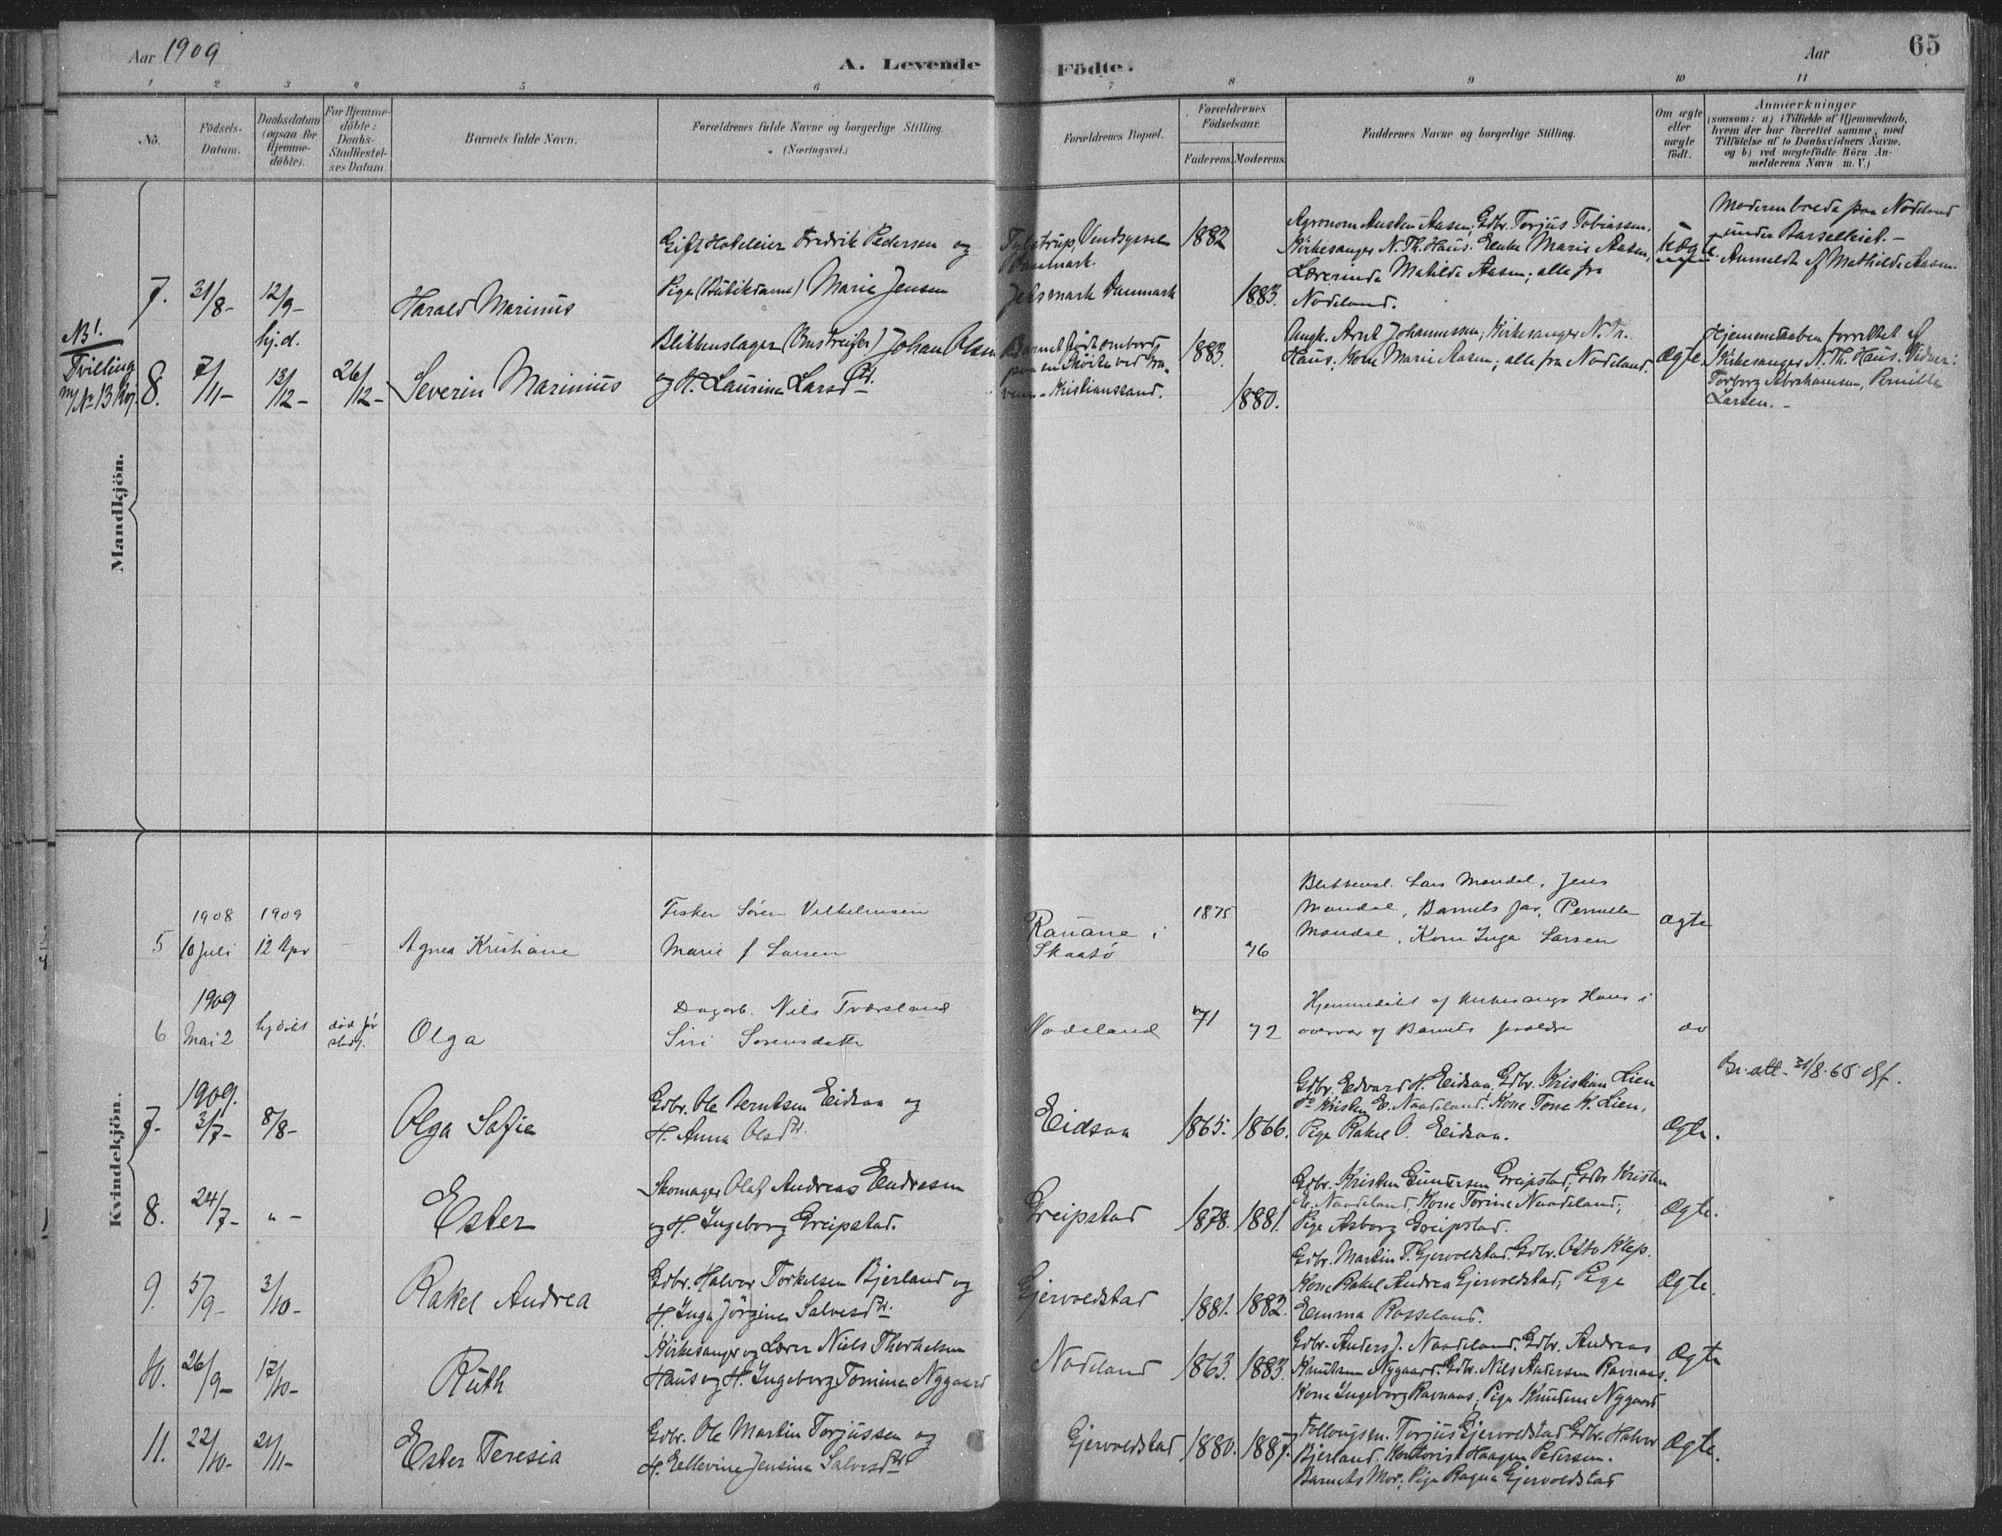 Aar 1909
A. Levende Födte.
Aar
65
1 2 3 4 5 6 7 8 9 10 11
No.
Födsels-
Datum.
Daabsdatum
(ogsaa for
Hjemme-
döbte).
For Hjemme-
döbte:
Daabs-
Stadfæstel-
ses Datum
Barnets fulde Navn.
Forældrenes fulde Navne og borgerlige Stilling.
(Næringsvei.)
Forældrenes Bopæl.
Forældrenes
Födselsaar.
Faderens.
Moderens.
Faddernes Navne og borgerlige Stilling.
Om ægte
eller
uægte
födt.
Anmærkninger
(saasom: a) i Tilfælde af Hjemmedaab,
hvem der har forrettet samme, med
Tilföielse af to Daabsvidners Navne,
og b) ved uægtefödte Börn An-
melderens Navn m. V.)
Mandkjön.
7. 31/8- 12/9-
Harald Marinius
Gift Hoteleier Fredrik Pedersen og
Pige (Butikdame) Marie Jensen
Tylstrup, Vendsyssel
Danmark.
Jetsmark Danmark
1882
1883.
Agronom Austen Aasen, Gdbr. Torjus Tobiassen.
Kirkesanger N. Th. Haus. Enke Marie Aasen,
Lærerinde Matilde Aasen; alle fra
Nodeland.
Uægte
Moderen boede paa Nodeland
under Barselleiet. -
Anmeldt af Mathilde Aasen.
NB!
Tvilling
m/ No 13
8. 7/11- hj.d. 13/12- 26/12-
Severin Marinius
Blikkenslager Johan Olsen
og H. Laurine Larsdtr.
Barnet födt ombord
paa en Sköite ved
Kristianssand.
1883.
1880.
Ungk. Arnt Johannessen, Kirkesanger N. Th.
Haus, Kone Marie Aasen, alle fra Nodeland.
Ægte
Hjemmedaaben forrettet af
Kirkesanger N. Th. Haus. Vidner:
Torborg Abrahamsen, Pernille
Larsen. -
Kvindekjön.
1908 1909
5 10 Juli 12 Apr -
Agnes Kristiane
Fisker Sören Vilhelmsen
Marie f Larsen
Rauane i
Skaatö
1875
76
Blikkensl. Lars Mandal, Jens
Mandal, Barnets far, Pernille
Mandal, Kone Inga Larsen
ægte
1909
6 Mai 2 hj.döbt död för
stadf.
Olga
Dagarb. Nils Tværsland
Siri Sorensdatter
Nodeland
71
72
Hjemmedöbt af Kirkesanger Haus i
overvær af Barnets forældre
do
1909.
7- 3/7- 8/8-
Olga Sofie
Gdbr. Ole Berntsen Eidsaa og
H. Anna Olsdtr.
Eidsaa
1865. 1866.
Gdbr. Edvard H. Eidsaa, Gdbr. Kristian Lien
do Kristen E. Naadeland, Kone Tone K. Lien,
Pige Rakel O. Eidsaa.
Ægte.
Br. att. 31/8-65
8. 24/7- " -
Ester
Skomager Olaf Andreas Endresen
og H. Ingeborg Greipstad.
Greipstad
1878. 1881.
Gdbr. Kristen Gundersen Greipstad, Gdbr Kristen
E. Naadeland, Kone Torine Naadeland,
Pige Asborg Greipstad.
Ægte.
9. 5/9- 3/10-
Rakel Andrea
Gdbr. Halvor Torkelsen Bjerland og
H. Inga Jörgine Salvesdtr.
Gjervoldstad
1881. 1882.
Gdbr. Martin T. Gjervoldstad. Gdbr. Otto Klep.
Kone Rakel Andrea Gjervoldstad, Pige
Emma Rosseland.
Ægte.
10. 26/9- 17/10-
Ruth
Kirkesanger og Lærer Niels Thorkelsen
Haus og H. Ingeborg Tomine Nygaard
Nodeland
1863. 1883.
Gdbr. Anders J. Naadeland. Gdbr. Andreas
Knutsen Nygaard. Gdbr. Nils Andersen Ravnaas.
Kone Ingeborg Ravnaas, Pige Nygaard
Ægte
11. 22/10- 21/11-
Ester Teresia
Gdbr. Ole Martin Torjussen og
H. Ellevine Jensine Salvesdtr
Gjervoldstad
1880. 1887.
Torjus Gjervoldstad Gdbr. Halvor
Bjerland, Kontorist Haagen Pedersen.
Barnets Mor, Pige Ragna Gjervoldstad
Ægte.